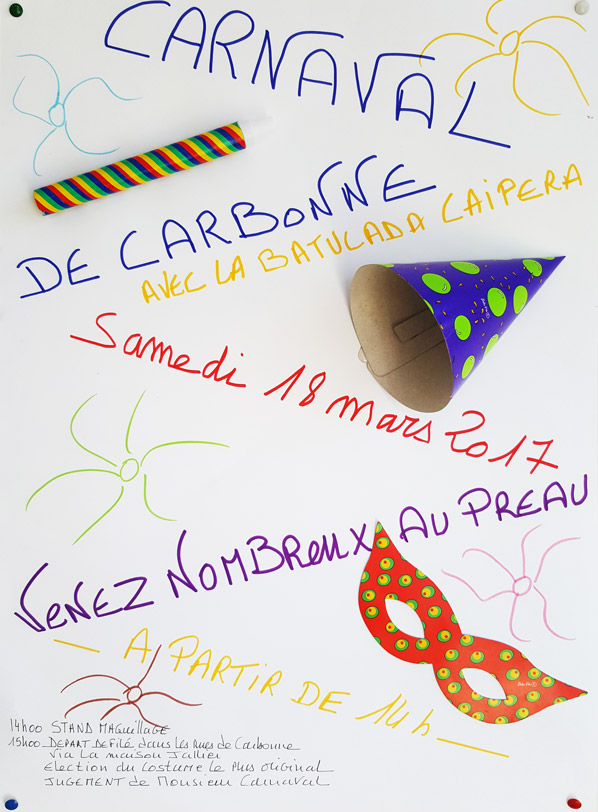 CARNAVAL
DE CARBONNE
AVEC LA BATULADA CAIPERA
Samedi 18 mars 2017
VENEZ NOMBReuX AU PREAU
— A PARTIR DE 14h —
14h00 STAND MAQuillAGE
15h00 DEPART DEFilé dans les Rues de Carbonne
via La maison Jallier
Election du Costume le Plus original
JUGEMENT de Monsieur Carnaval